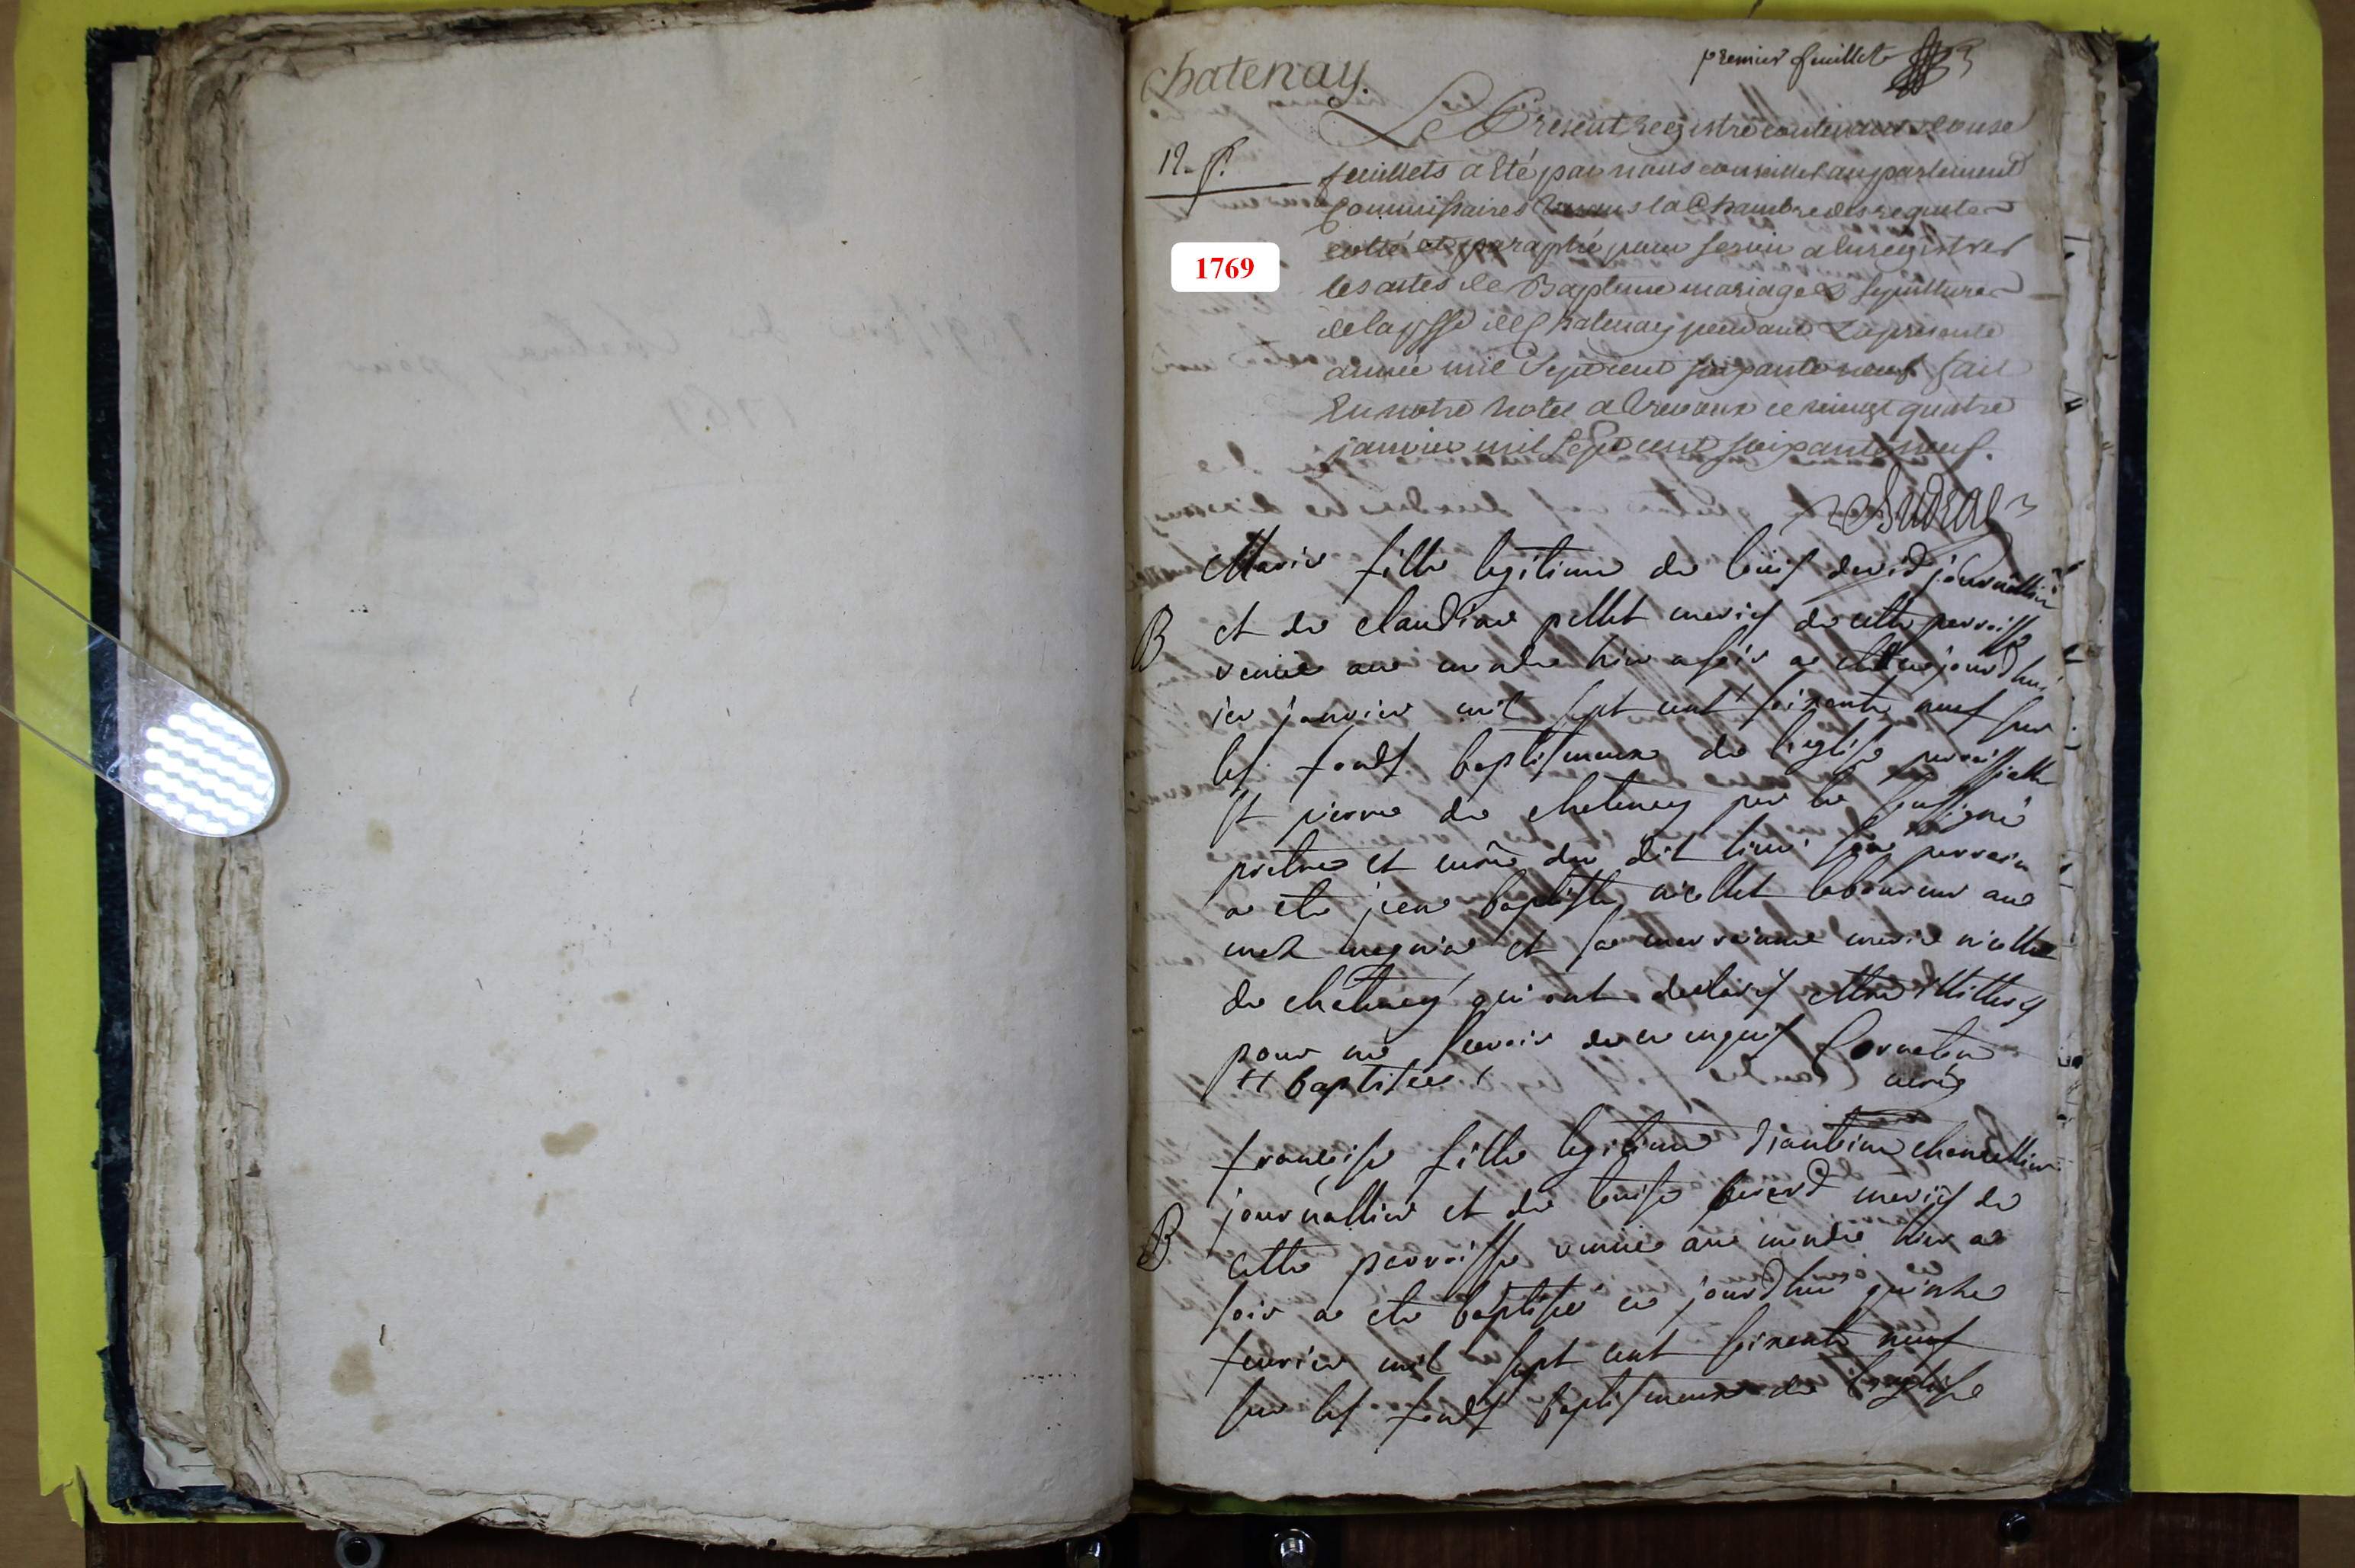 chatenay.
premier feuillet
Le Present registre contenant douse
12. f.
feuillets a été par nous conseiller au parlement
Commissaires la Chambre des requete
cotté et paraphé pour servir a Enregistrer
1769
les actes de Bapteme mariage & sepulture
de la psse de Chatenay pendant La presente
année mil Sept cent soixante neuf fait
En notre hotel a Trevoux ce vingt quatre
janvier mil Sept cent soixante neuf.
Marie fille legitime de loüis david journallier
B
et de claudine pellet mariés de cette parroisse
venüe au monde hier a soir a ette ce jourd'hui
janvier mil sept cent soixante neuf sur
les fonds baptismaux de l'eglise parroissialle
st pierre de chatenay par le soussigné
pretre et curé du dit lieu son parrain
a ete jean baptiste niollet laboureur au
et sa marrainne marie niollet
de chatenay qui ont declarés ettre illitterés
pour ne scavoir de ce enquis Cornaton
++ baptisée /
curé
francoise fille legitime d'antoine
journallier et de louise mariés de
B
cette parroisse venüe au monde hier a
soir a ete baptisée ce jourd'hui quinze
fevrier mil sept cent soixante neuf
sur les fonds baptismaux de l'eglise